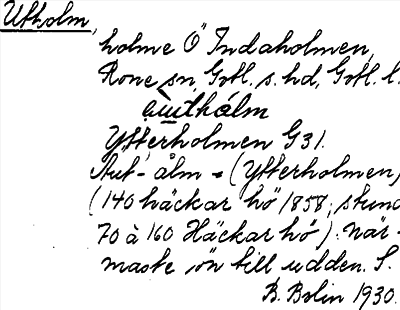 Utholm,
holme Ö Indaholmen,
Rone sn, Gotl. s. hd, Gotl. l.
authålm
Ytterholmen G31.
Aut-ålm = (Ytterholmen)
(140 häckar hö 1858; stund
70 à 160 Häckar hö). När-
maste ön till udden. S.
B. Bolin 1930.